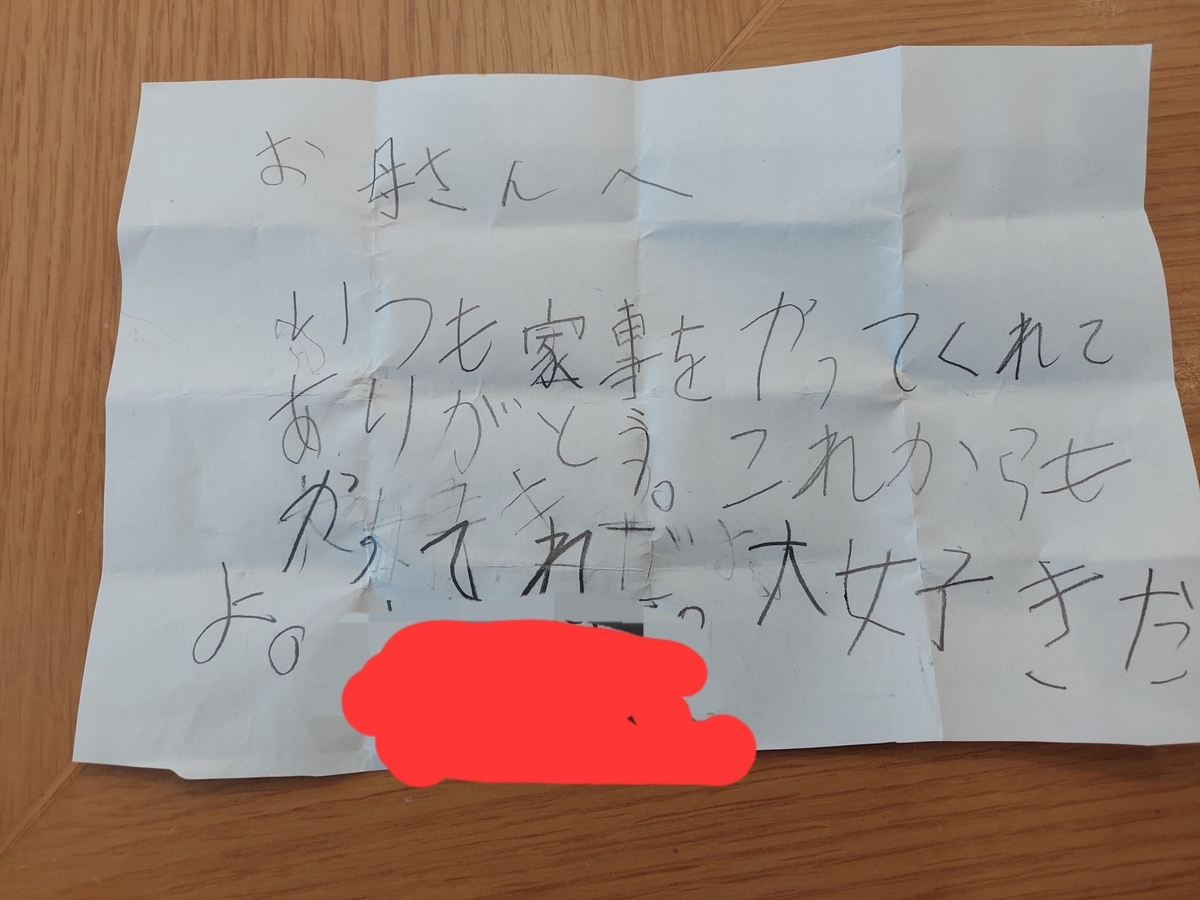 お母さんへ
いつも家事をやってくれて
ありがとう。これからも
やってれ 大好きだ
よ。